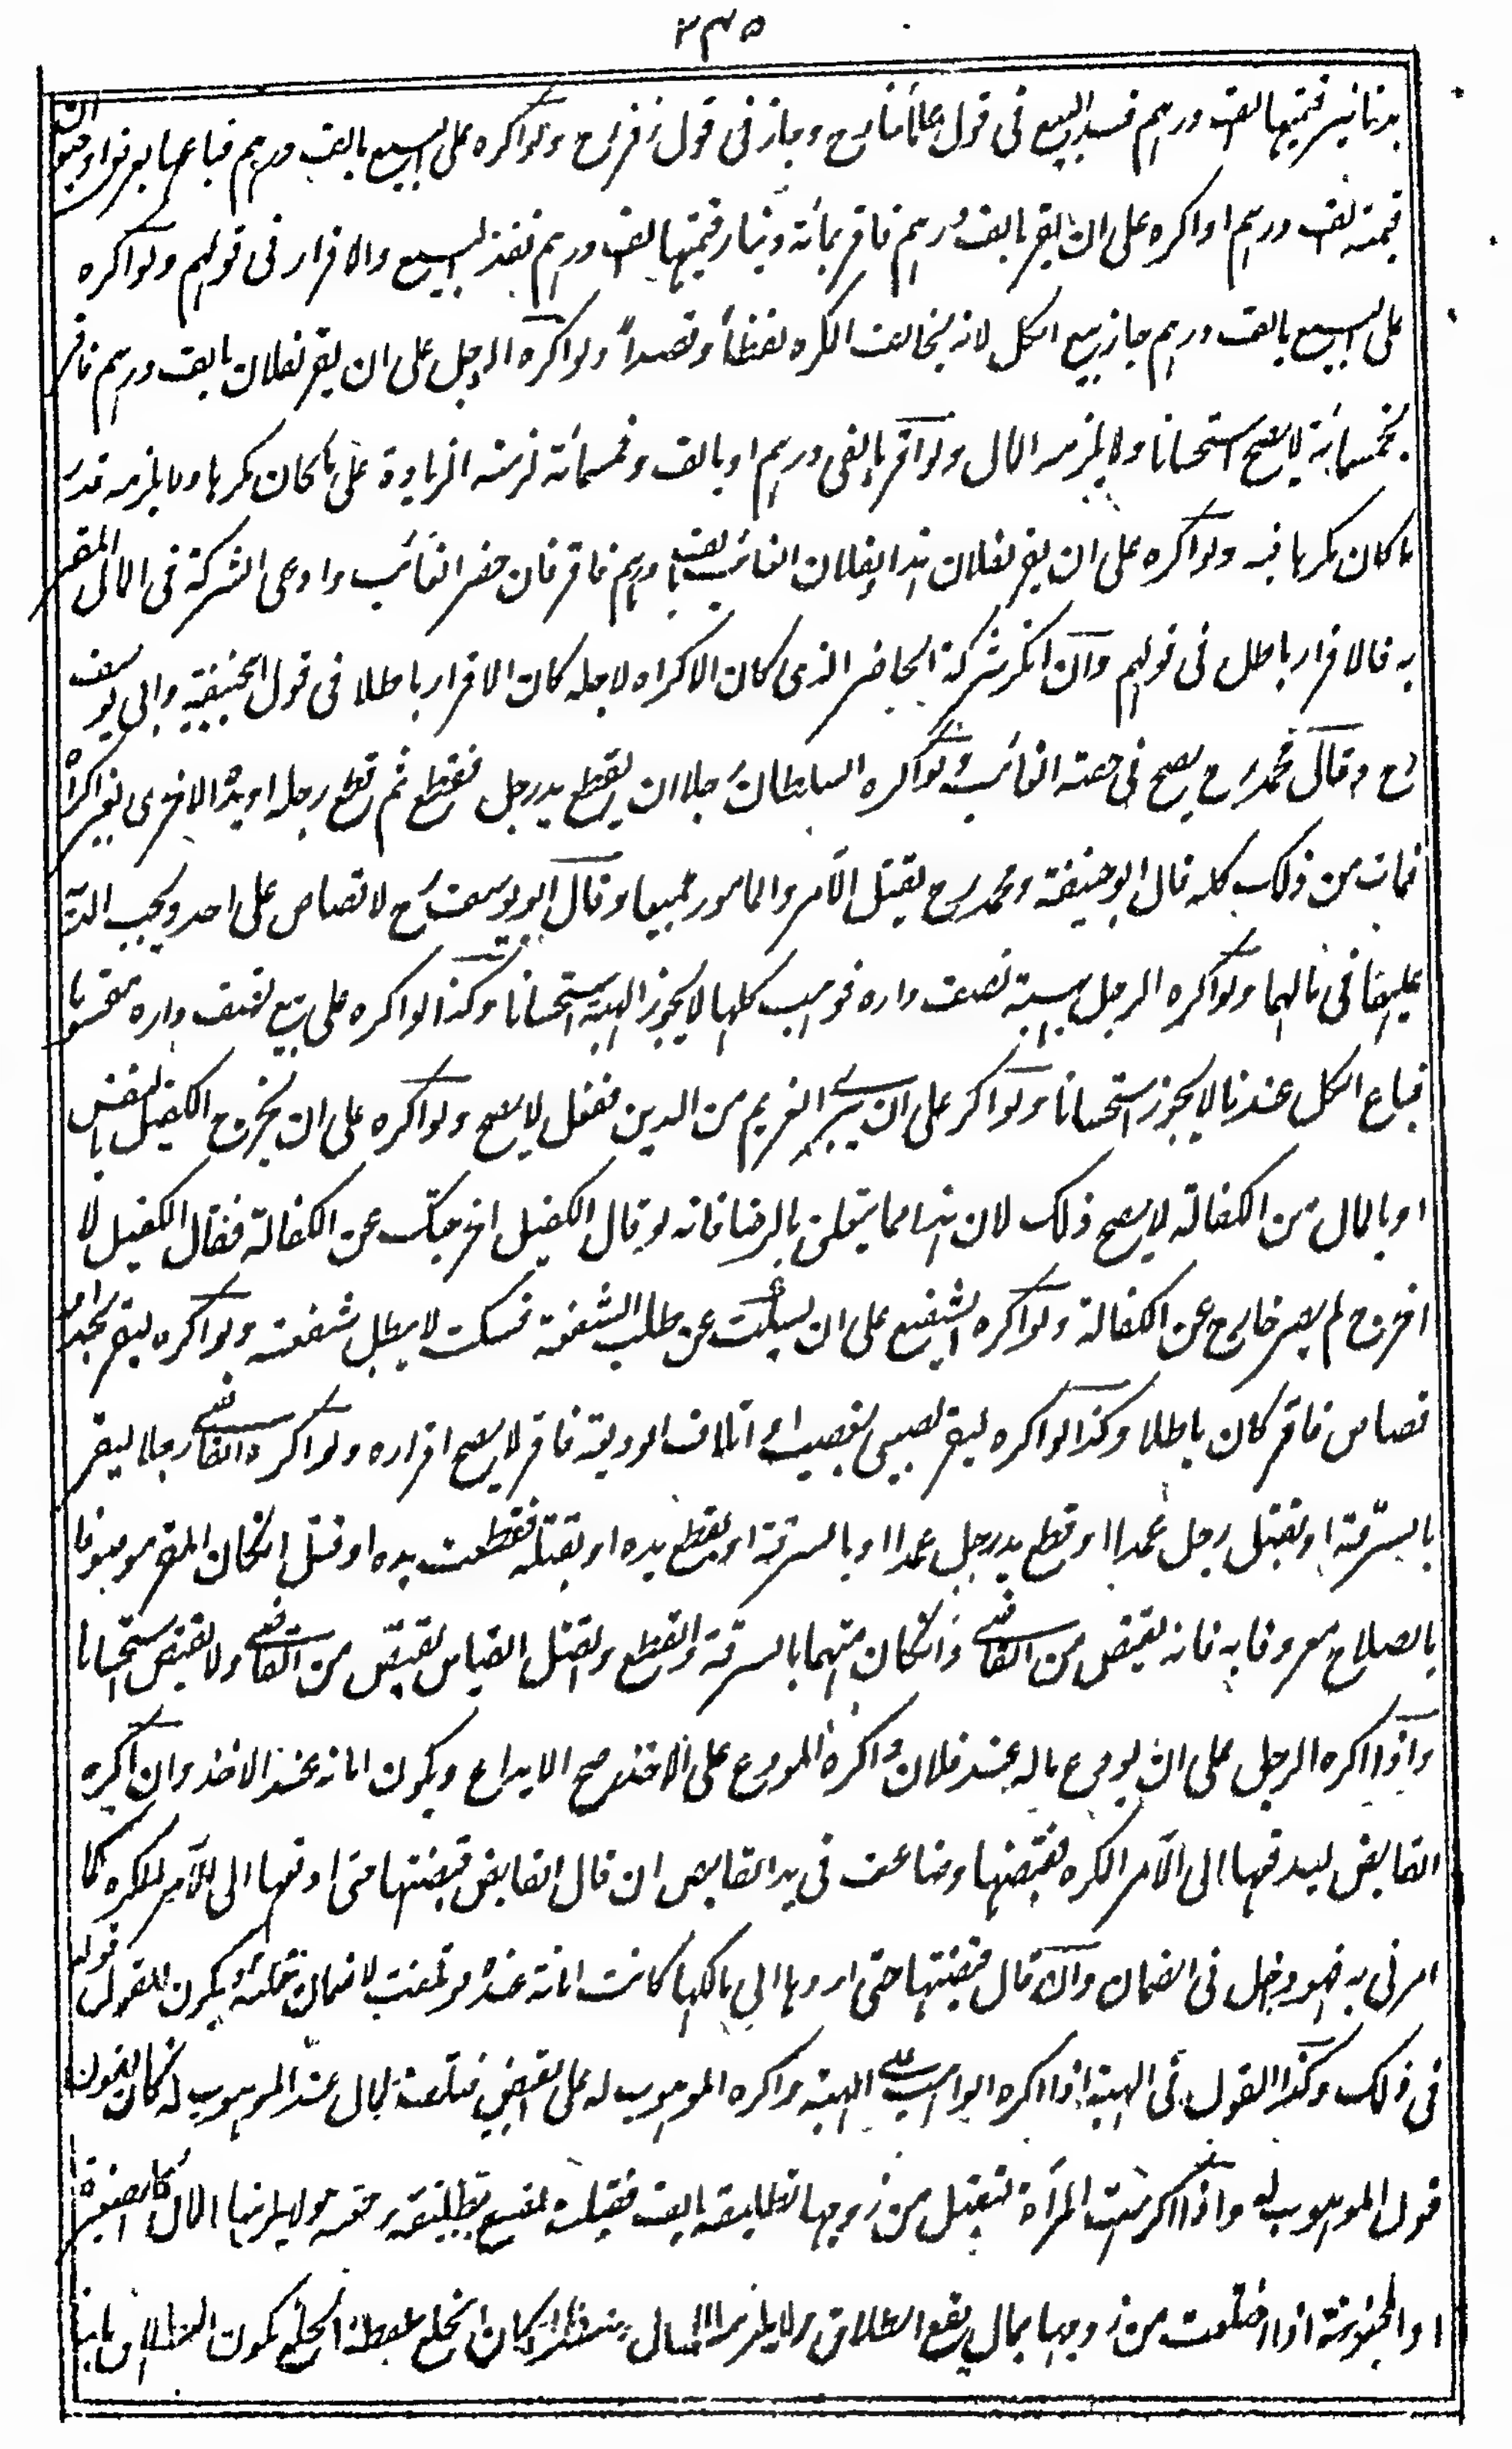 ٣٣٥
بدنانير قيمتها الف درهم فسد البيع فى قول علمائنا رح وجاز فى قول زفر رح ولو اكره على البيع بالف درهم فباعها بعرض او حيوان
قيمته الف درهم او اكره على ان يقر بالف درهم فاقر بمائة دينار قيمتها الف درهم نفذ البيع والاقرار فى قولهم ولو اكره
على البيع بالف درهم جاز بيع الكل لانه يخالف المكره لفظا وقصدا ولو اكره الرجل على ان يقر لفلان بالف درهم فاقر
بخمسمائة لا يصح استحسانا ولا يلزمه المال ولو اقر بالفى درهم او بالف وخمسمائة لزمته الزيادة على ما كان مكرها ولا يلزمه قدر
ما كان مكرها فيه ولو اكره على ان يقر لفلان هذا ولفلان الغائب بالف درهم فاقر فان حضر الغائب وادعى الشركة فى المال المقر
به فالاقرار باطل فى قولهم وان انكر شركة الحاضر الذى كان الاكراه لاجله كان الاقرار باطلا فى قول ابيحنيفة وابى يوسف
رح وقال محمد رح يصح فى حصة الغائب ولو اكره السلطان رجلا ان يقطع يد رجل فقطع ثم قطع رجله او يده الاخرى بغير اكراه
فمات من ذلك كله قال ابو حنيفة ومحمد رح يقتل الآمر والمامور جميعا وقال ابو يوسف رح لا قصاص على احد ويجب الدية
عليهما فى مالهما ولو اكره الرجل بهبة نصف داره فوهب كلها لا يجوز الهبة استحسانا وكذا لو اكره على بيع نصف داره مقسوما
فباع الكل عندنا لا يجوز استحسانا ولو اكره على ان يبرئ الغريم من الدين ففعل لا يصح ولو اكره على ان يخرج الكفيل بالنفس
او بالمال من الكفالة لا يصح ذلك لان هذا مما يتعلق بالرضا فانه لو قال الكفيل اخرجتك عن الكفالة فقال الكفيل لا
اخرج لم يصر خارج عن الكفالة ولو اكره الشفيع على ان يسكت عن طلب الشفعة فسكت لا يبطل شفعته ولو اكره ليقر بحد او
قصاص فاقر كان باطلا وكذا لو اكره ليقر بغصب او اتلاف الوديعة فاقر لا يصح اقراره ولو اكره القاضى رجلا ليقر
بالسرقة او بقتل رجل عمدا او قطع يد رجل عمدا او بالسرقة او بقطع يده او بقتله فقطعت يده او قتل انكان المقر موصوفا
بالصلاح معروفا به فانه يقتص من القاضى وانكان متهما بالسرقة والقطع والقتل القياس يقتص من القاضى ولا يقتص استحسانا
واذا اكره الرجل على ان يودع ماله عند فلان واكره المودع على الاخذ صح الايداع ويكون امانة عند الاخذ وان اكره
القابض ليدفعها الى الآمر المكره فقبضها وضاعت فى يد القابض ان قال القابض قبضتها حتى ادفعها الى الآمر المكره كما
امرنى به فهو داخل فى الضمان وان قال قبضتها حتى اردها الى مالكها كانت امانة عنده وتلفت لا ضمان عليه ويكون القول قوله
فى ذلك وكذا القول فى الهبة اذا اكره الواهب على الهبة واكره الموهوب له على القبض فتلف المال عند الموهوب له كان القول
قول الموهوب له واذا اكرهت المرأة لتقبل من زوجها تطليقة بالف فقبلت يقع تطليقة رجعية ولا يلزمها المال كالصغيرة
او المجنونة اذا اختلعت من زوجها بمال يقع الطلاق ولا يلزم المال كان الخلع بلفظة الخلع يكون الطلاق باينا